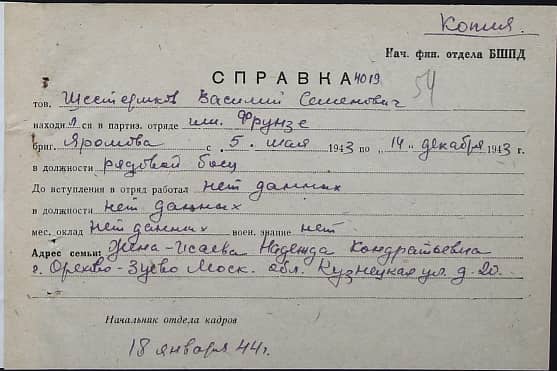 Копия.
Нач. фин. отдела БШПД
СПРАВКА 4019
54
тов. Шестерików Василий Семенович
находился в партиз. отряде им. Фрунзе
бриг. Яромова с 5. мая 1943 по "14" декабря 1943 г.
в должности рядовой боец
До вступления в отряд работал нет данных
в должности нет данных
мес. оклад нет данных воен. звание нет
Адрес семьи: Жена-Исаева Надежда Кондратьевна
г. Орехово-Зуево Моск. обл. Кузнецкая ул. д-20.
Начальник отдела кадров
18 января 44г.